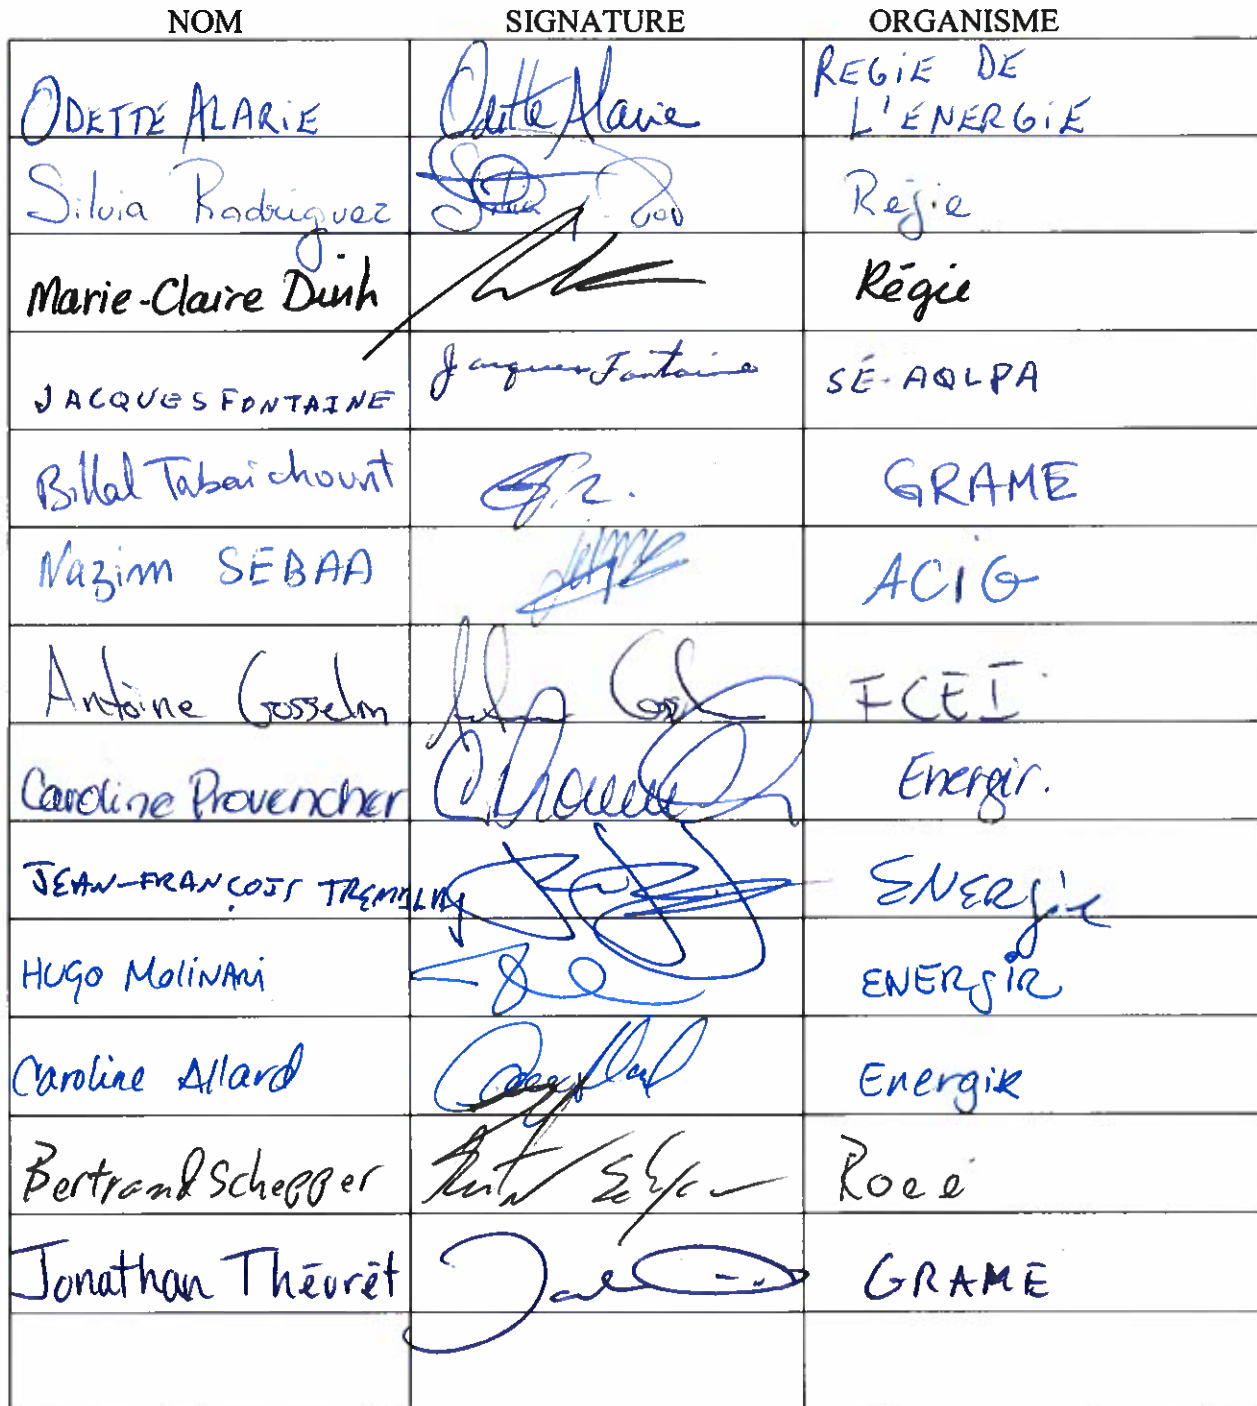 NOM SIGNATURE ORGANISME
ODETTE ALARIE Odette Alarie REGIE DE
L'ENERGIE
Silvia Rodriguez Régie
Marie-Claire Dinh Régie
JACQUES FONTAINE Jacques Fontaine SÉ-AQLPA
Billal Tabaichount GRAME
Nazim SEBAA ACIG
Antoine Gosselin FCEI
Caroline Provencher Energir.
JEAN-FRANÇOIS TREMBLAY ENERgir
HUGO MOLINARI ENERgIR
Caroline Allard Energir
Bertrand Schepper Roeé
Jonathan Théorêt GRAME